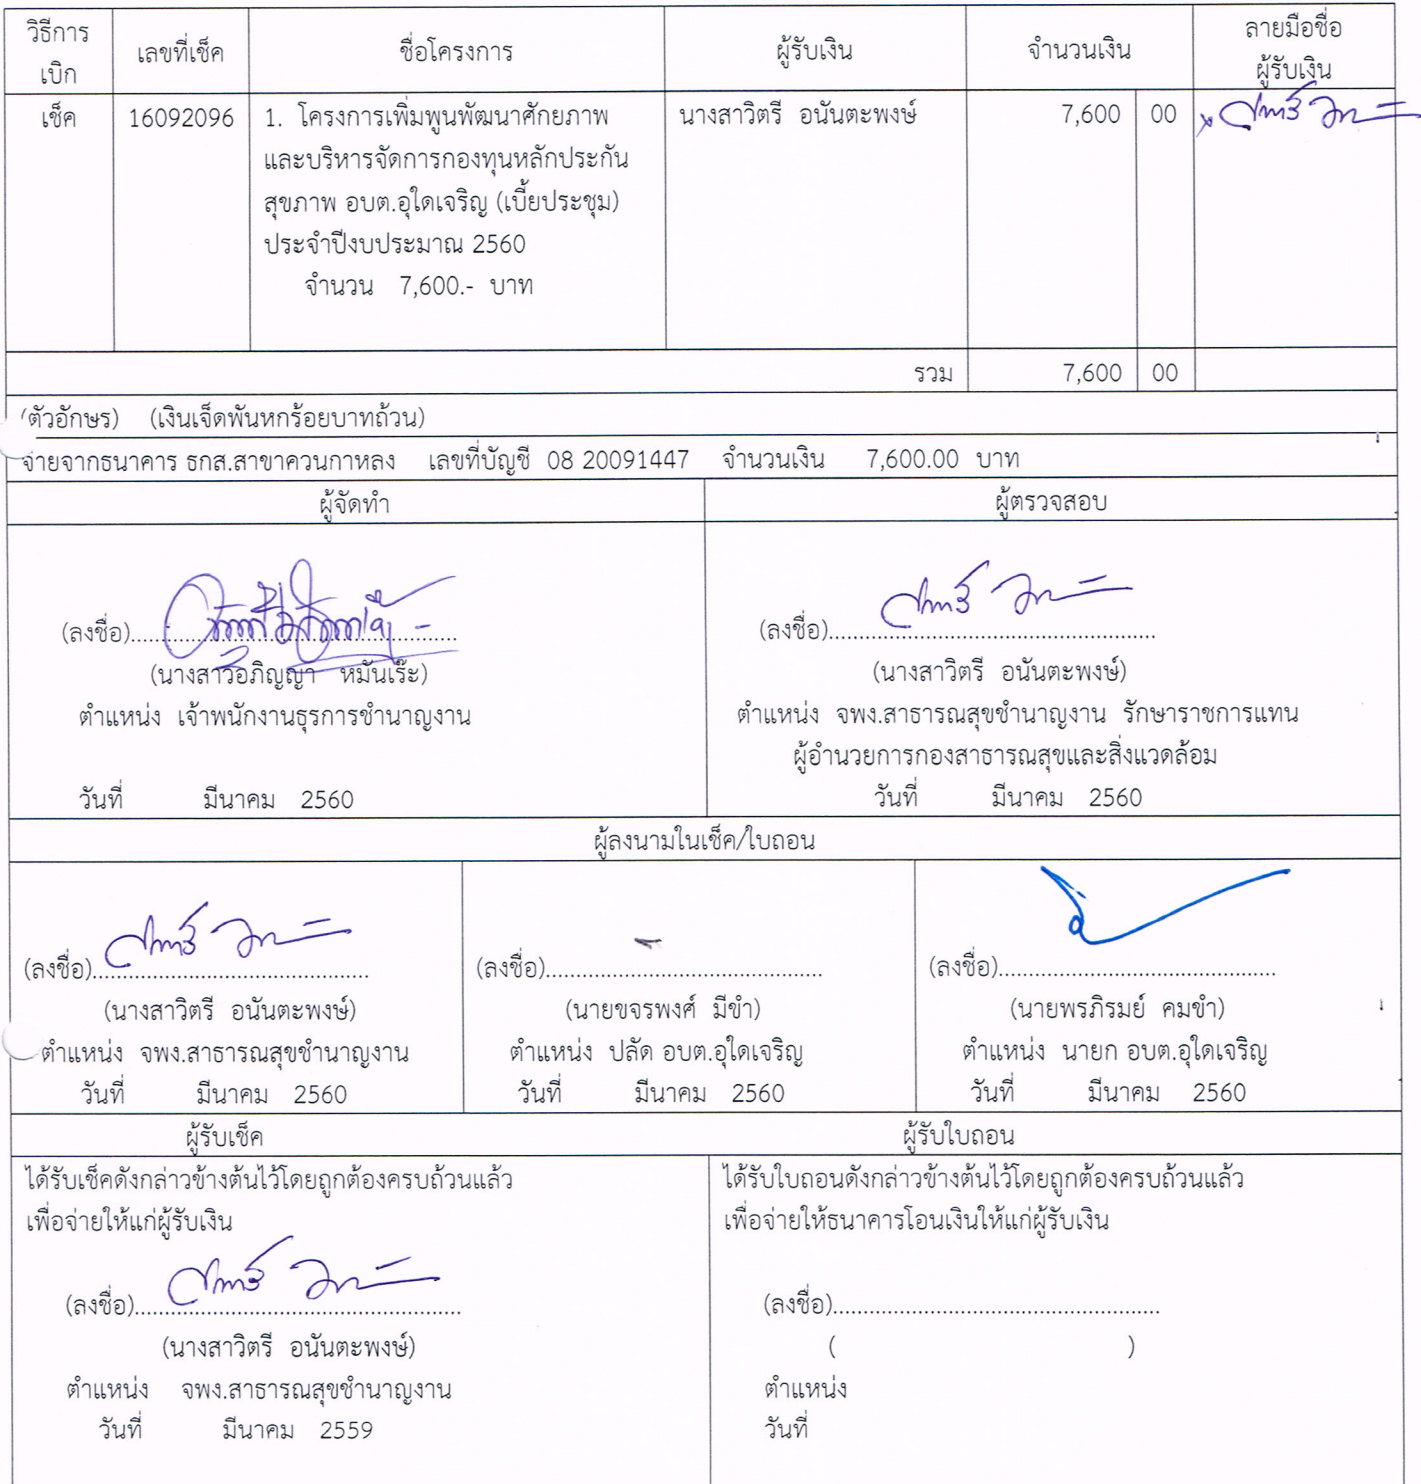 วิธีการ
เบิก
เลขที่เช็ค
ชื่อโครงการ
ผู้รับเงิน
จำนวนเงิน
ลายมือชื่อ
ผู้รับเงิน
เช็ค 16092096 1. โครงการเพิ่มพูนพัฒนาศักยภาพ นางสาวิตรี อนันตะพงษ์ 7,600 00
และบริหารจัดการกองทุนหลักประกัน
สุขภาพ อบต.อุใดเจริญ (เบี้ยประชุม)
ประจำปีงบประมาณ 2560
จำนวน 7,600.- บาท
รวม 7,600 00
(ตัวอักษร) (เงินเจ็ดพันหกร้อยบาทถ้วน)
จ่ายจากธนาคาร ธกส.สาขาควนกาหลง เลขที่บัญชี 08 20091447 จำนวนเงิน 7,600.00 บาท
ผู้จัดทำ
(ลงชื่อ)
(นางสาวอภิญญา หมันเร๊ะ)
ตำแหน่ง เจ้าพนักงานธุรการชำนาญงาน
วันที่ มีนาคม 2560
ผู้ตรวจสอบ
(ลงชื่อ)
(นางสาวิตรี อนันตะพงษ์)
ตำแหน่ง จพง.สาธารณสุขชำนาญงาน รักษาราชการแทน
ผู้อำนวยการกองสาธารณสุขและสิ่งแวดล้อม
วันที่ มีนาคม 2560
ผู้ลงนามในเช็ค/ใบถอน
(ลงชื่อ)
(นางสาวิตรี อนันตะพงษ์)
ตำแหน่ง จพง.สาธารณสุขชำนาญงาน
วันที่ มีนาคม 2560
(ลงชื่อ)
(นายขจรพงศ์ มีขำ)
ตำแหน่ง ปลัด อบต.อุใดเจริญ
วันที่ มีนาคม 2560
(ลงชื่อ)
(นายพรภิรมย์ คมขำ)
ตำแหน่ง นายก อบต.อุใดเจริญ
วันที่ มีนาคม 2560
ผู้รับเช็ค
ได้รับเช็คดังกล่าวข้างต้นไว้โดยถูกต้องครบถ้วนแล้ว
เพื่อจ่ายให้แก่ผู้รับเงิน
(ลงชื่อ)
(นางสาวิตรี อนันตะพงษ์)
ตำแหน่ง จพง.สาธารณสุขชำนาญงาน
วันที่ มีนาคม 2559
ผู้รับใบถอน
ได้รับใบถอนดังกล่าวข้างต้นไว้โดยถูกต้องครบถ้วนแล้ว
เพื่อจ่ายให้ธนาคารโอนเงินให้แก่ผู้รับเงิน
(ลงชื่อ)
( )
ตำแหน่ง
วันที่